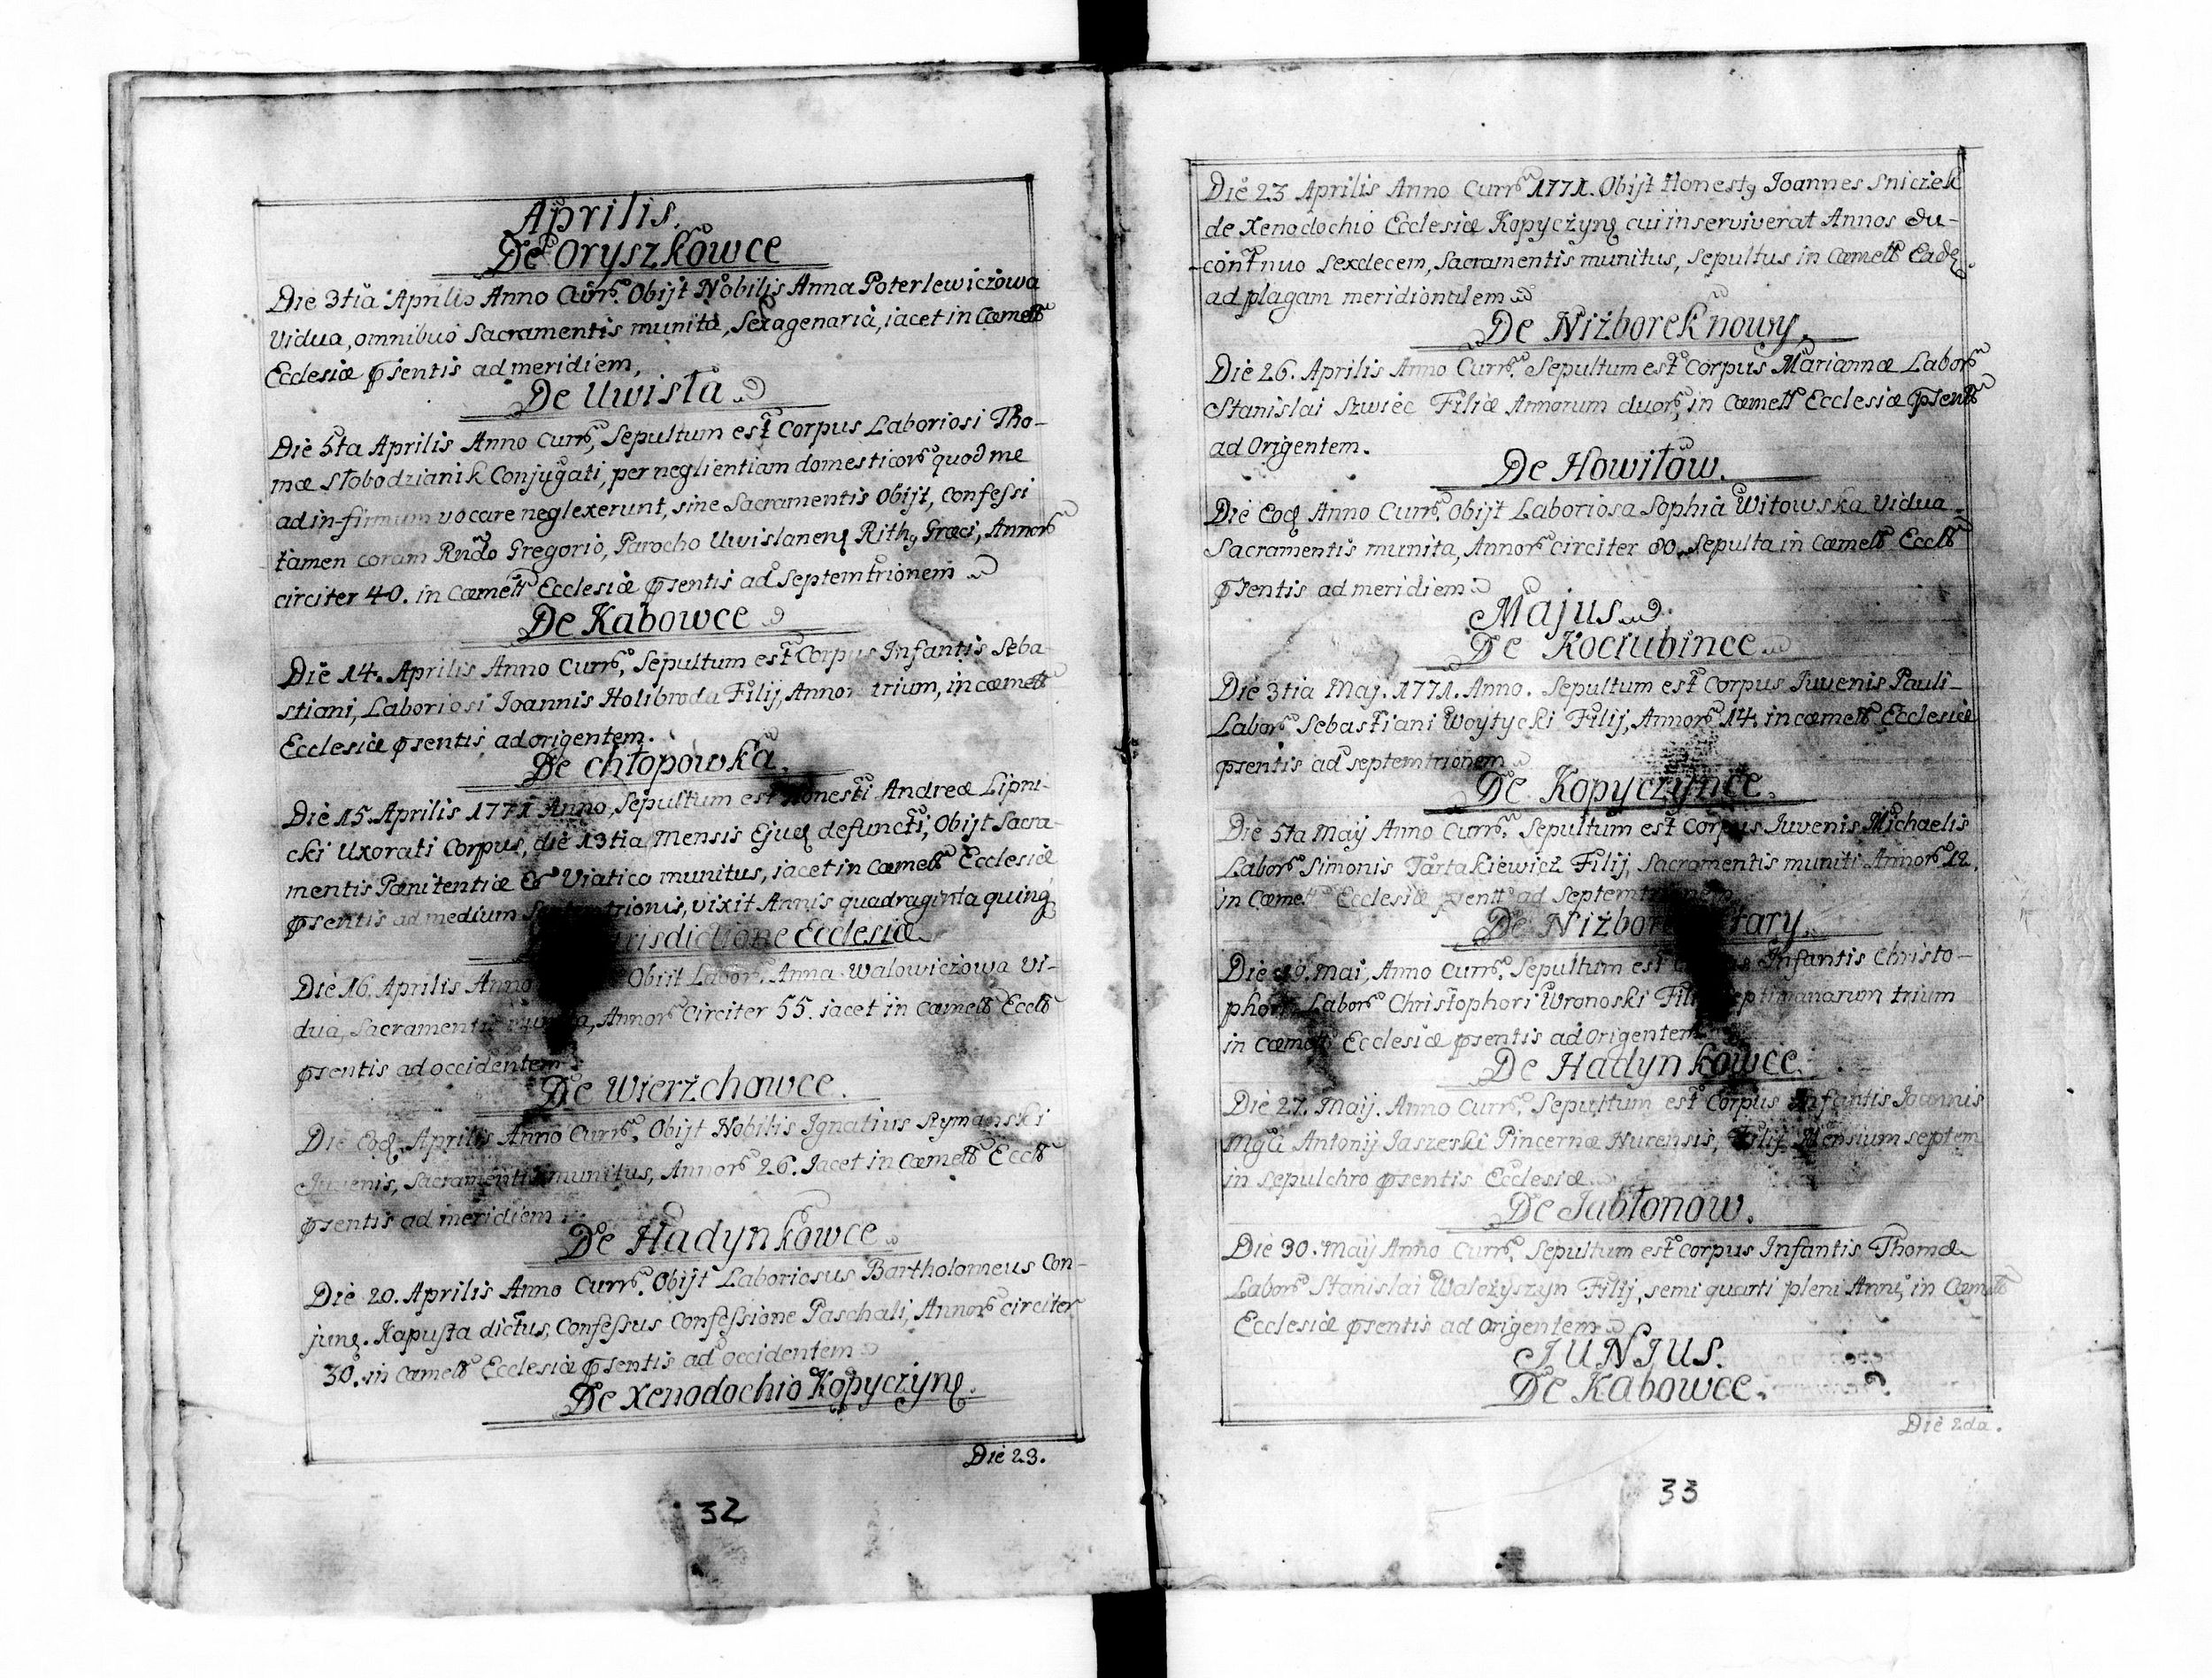 Aprilis.
De Oryszkowce
Die 3tia Aprilis Anno Curr. Obijt Nobilis Anna Poterlewiczowa
Vidua, omnibus Sacramentis munita, Sexagenaria, iacet in Cœmett
Ecclesiæ psentis ad meridiem,
De Uwisła
Die 5ta Aprilis Anno Curr, Sepultum est Corpus Laboriosi Tho-
mæ Słobodzianik Conjugati, per neglientiam domesticor quod me
ad in-firmum vocare neglexerunt, sine Sacramentis Obijt, Confessi
tamen coram Rndo Gregorio, Parocho Uwislanen Rith Græci, Annor
circiter 40. in Cœmett Ecclesiæ psentis ad Septemtrionem
De Kabowce
Die 14. Aprilis Anno Curr, Sepultum est Corpus Infantis Seba-
stiani, Laboriosi Joannis Holibroda Filij, Annor trium, in cœmett
Ecclesiæ psentis ad origentem.
De Chłopowka.
Die 15. Aprilis 1771 Anno, Sepultum est Honesti Andreæ Lipni-
cki Uxorati Corpus, die 13tia Mensis Ejus defuncti, Obijt Sacra-
mentis Pænitentiæ Et Viatico munitus, iacet in Cœmett Ecclesiæ
psentis ad medium Septemtrionis, vixit Annis quadraginta quinq
risdictione Ecclesiæ
Die 16. Aprilis Anno Obijt Labor. Anna Walowiczowa Vi-
dua, Sacramentis munita, Annor Circiter 55. iacet in Cœmett Eccls
psentis ad occidentem
De Wierzchowce.
Die Eod Aprilis Anno Curr. Obijt Nobilis Ignatius Szymanski
Juvenis, Sacramentis munitus, Annor 26. Jacet in Cœmett Eccls
psentis ad meridiem
De Hadynkowce
Die 20. Aprilis Anno Curr. Obijt Laboriosus Bartholomeus Con-
jung. Kapusta dictus, Confessus Confessione Paschali, Annor circiter
30. in Cœmett Ecclesiæ psentis ad occidentem
De Xenodochio Kopyczyn.
Die 23.
32
Die 23 Aprilis Anno Curr 1771. Obijt Honest Joannes Sniczek
de Xenodochio Ecclesiæ Kopyczyn cui inserviverat Annos du-
continuo Sexdecem, Sacramentis munitus, Sepultus in Cœmett Ead.
ad plagam meridionalem
De Niżborek nowy.
Die 26. Aprilis Anno Curr. Sepultum est Corpus Mariannæ Labor
Stanislai Szwiec Filiæ Annorum duor, in Cœmett Ecclesiæ psentt
ad Origentem.
De Howiłow.
Die Eod Anno Curr. Obijt Laboriosa Sophia Witowska Vidua
Sacramentis munita, Annor circiter 80. Sepulta in Cœmett Eccls
psentis ad meridiem
Majus
De Kociubince
Die 3tia Maj. 1771. Anno. Sepultum est Corpus Juvenis Pauli-
Labor Sebastiani Woytycki Filij, Annor 14. in cœmett Ecclesiæ
psentis ad septemtrionem
De Kopyczynce.
Die 5ta Maij Anno Curr. Sepultum est Corpus Juvenis Michaelis
Labor Simonis Tartakiewicz Filij, Sacramentis muniti Annor 12.
in Cœmett Ecclesiæ psentt ad Septemtrionem
De Niżborek Stary.
Die 19. Mai, Anno Curr. Sepultum est Corpus Infantis Christo-
phori Labor Christophori Wronoski Filij Septimanarum trium
in Cœmett Ecclesiæ psentis ad Origentem
De Hadynkowce.
Die 27. Maij. Anno Curr. Sepultum est Corpus Infantis Joannis
Mgci Antonij Jaszeski Pincernæ Nurensis, Filij Mensium septem
in Sepulchro psentis Ecclesiæ
De Jabłonow.
Die 30. Maij Anno Curr. Sepultum est corpus Infantis Thomæ
Labor Stanislai Walczyszyn Filij, semi quarti pleni Anni, in Cœmett
Ecclesiæ psentis ad Origentem
JUNIUS.
De Kabowce.
Die 2da.
33